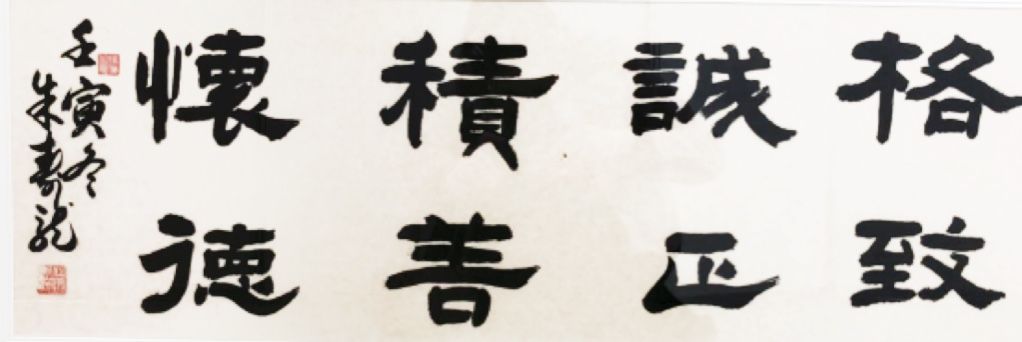 格致
誠正
積善
懷德
壬寅冬
朱壽龍